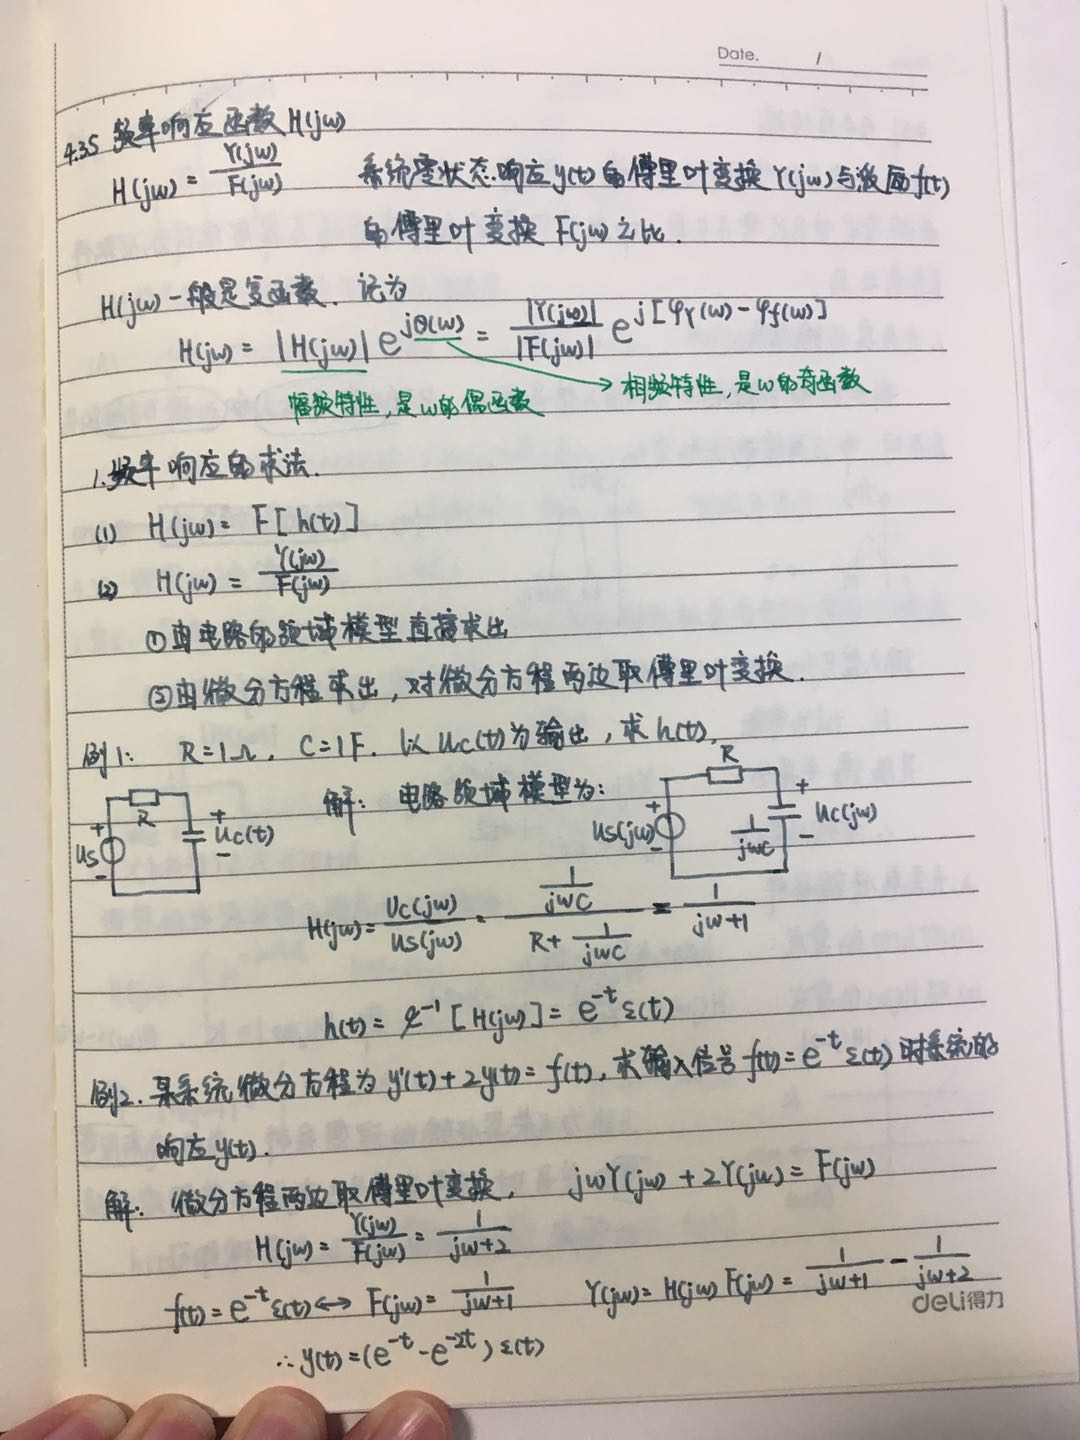 Date. 1
4.35 频率响应函数 H(jw)
H(jw) = Y(jw)/F(jw) 系统零状态响应y(t)的傅里叶变换Y(jw)与激励f(t)
的傅里叶变换 F(jw)之比.
H(jw)一般是复函数. 记为
H(jw) = |H(jw)| e^{jθ(w)} = |Y(jw)|/|F(jw)| e^{j[φY(w)-φf(w)]}
幅频特性,是w的偶函数 相频特性,是w的奇函数
1.频率响应的求法.
(1) H(jw) = F[h(t)]
(2) H(jw) = Y(jw)/F(jw)
①由电路的频域模型直接求出
②由微分方程求出,对微分方程两边取傅里叶变换.
例1: R=1Ω, C=1F. 以 uc(t)为输出,求 h(t).
解: 电路频域模型为:
R
+ + us - uc(t) -
R
+ + us(jw) - 1/jwC uc(jw) -
H(jw) = Uc(jw)/us(jw) = (1/jwC)/(R+1/jwC) = 1/(jw+1)
h(t) = ℒ⁻¹[H(jw)] = e^{-t}ε(t)
例2. 某系统微分方程为 y'(t)+2y(t)=f(t),求输入信号 f(t)=e^{-t}ε(t)时系统的
响应y(t).
解: 微分方程两边取傅里叶变换, jwY(jw)+2Y(jw)=F(jw)
H(jw) = Y(jw)/F(jw) = 1/(jw+2)
f(t)=e^{-t}ε(t)↔F(jw)=1/(jw+1) Y(jw)=H(jw)F(jw)=1/(jw+1)-1/(jw+2)
deli得力
∴y(t)=(e^{-t}-e^{-2t})ε(t)